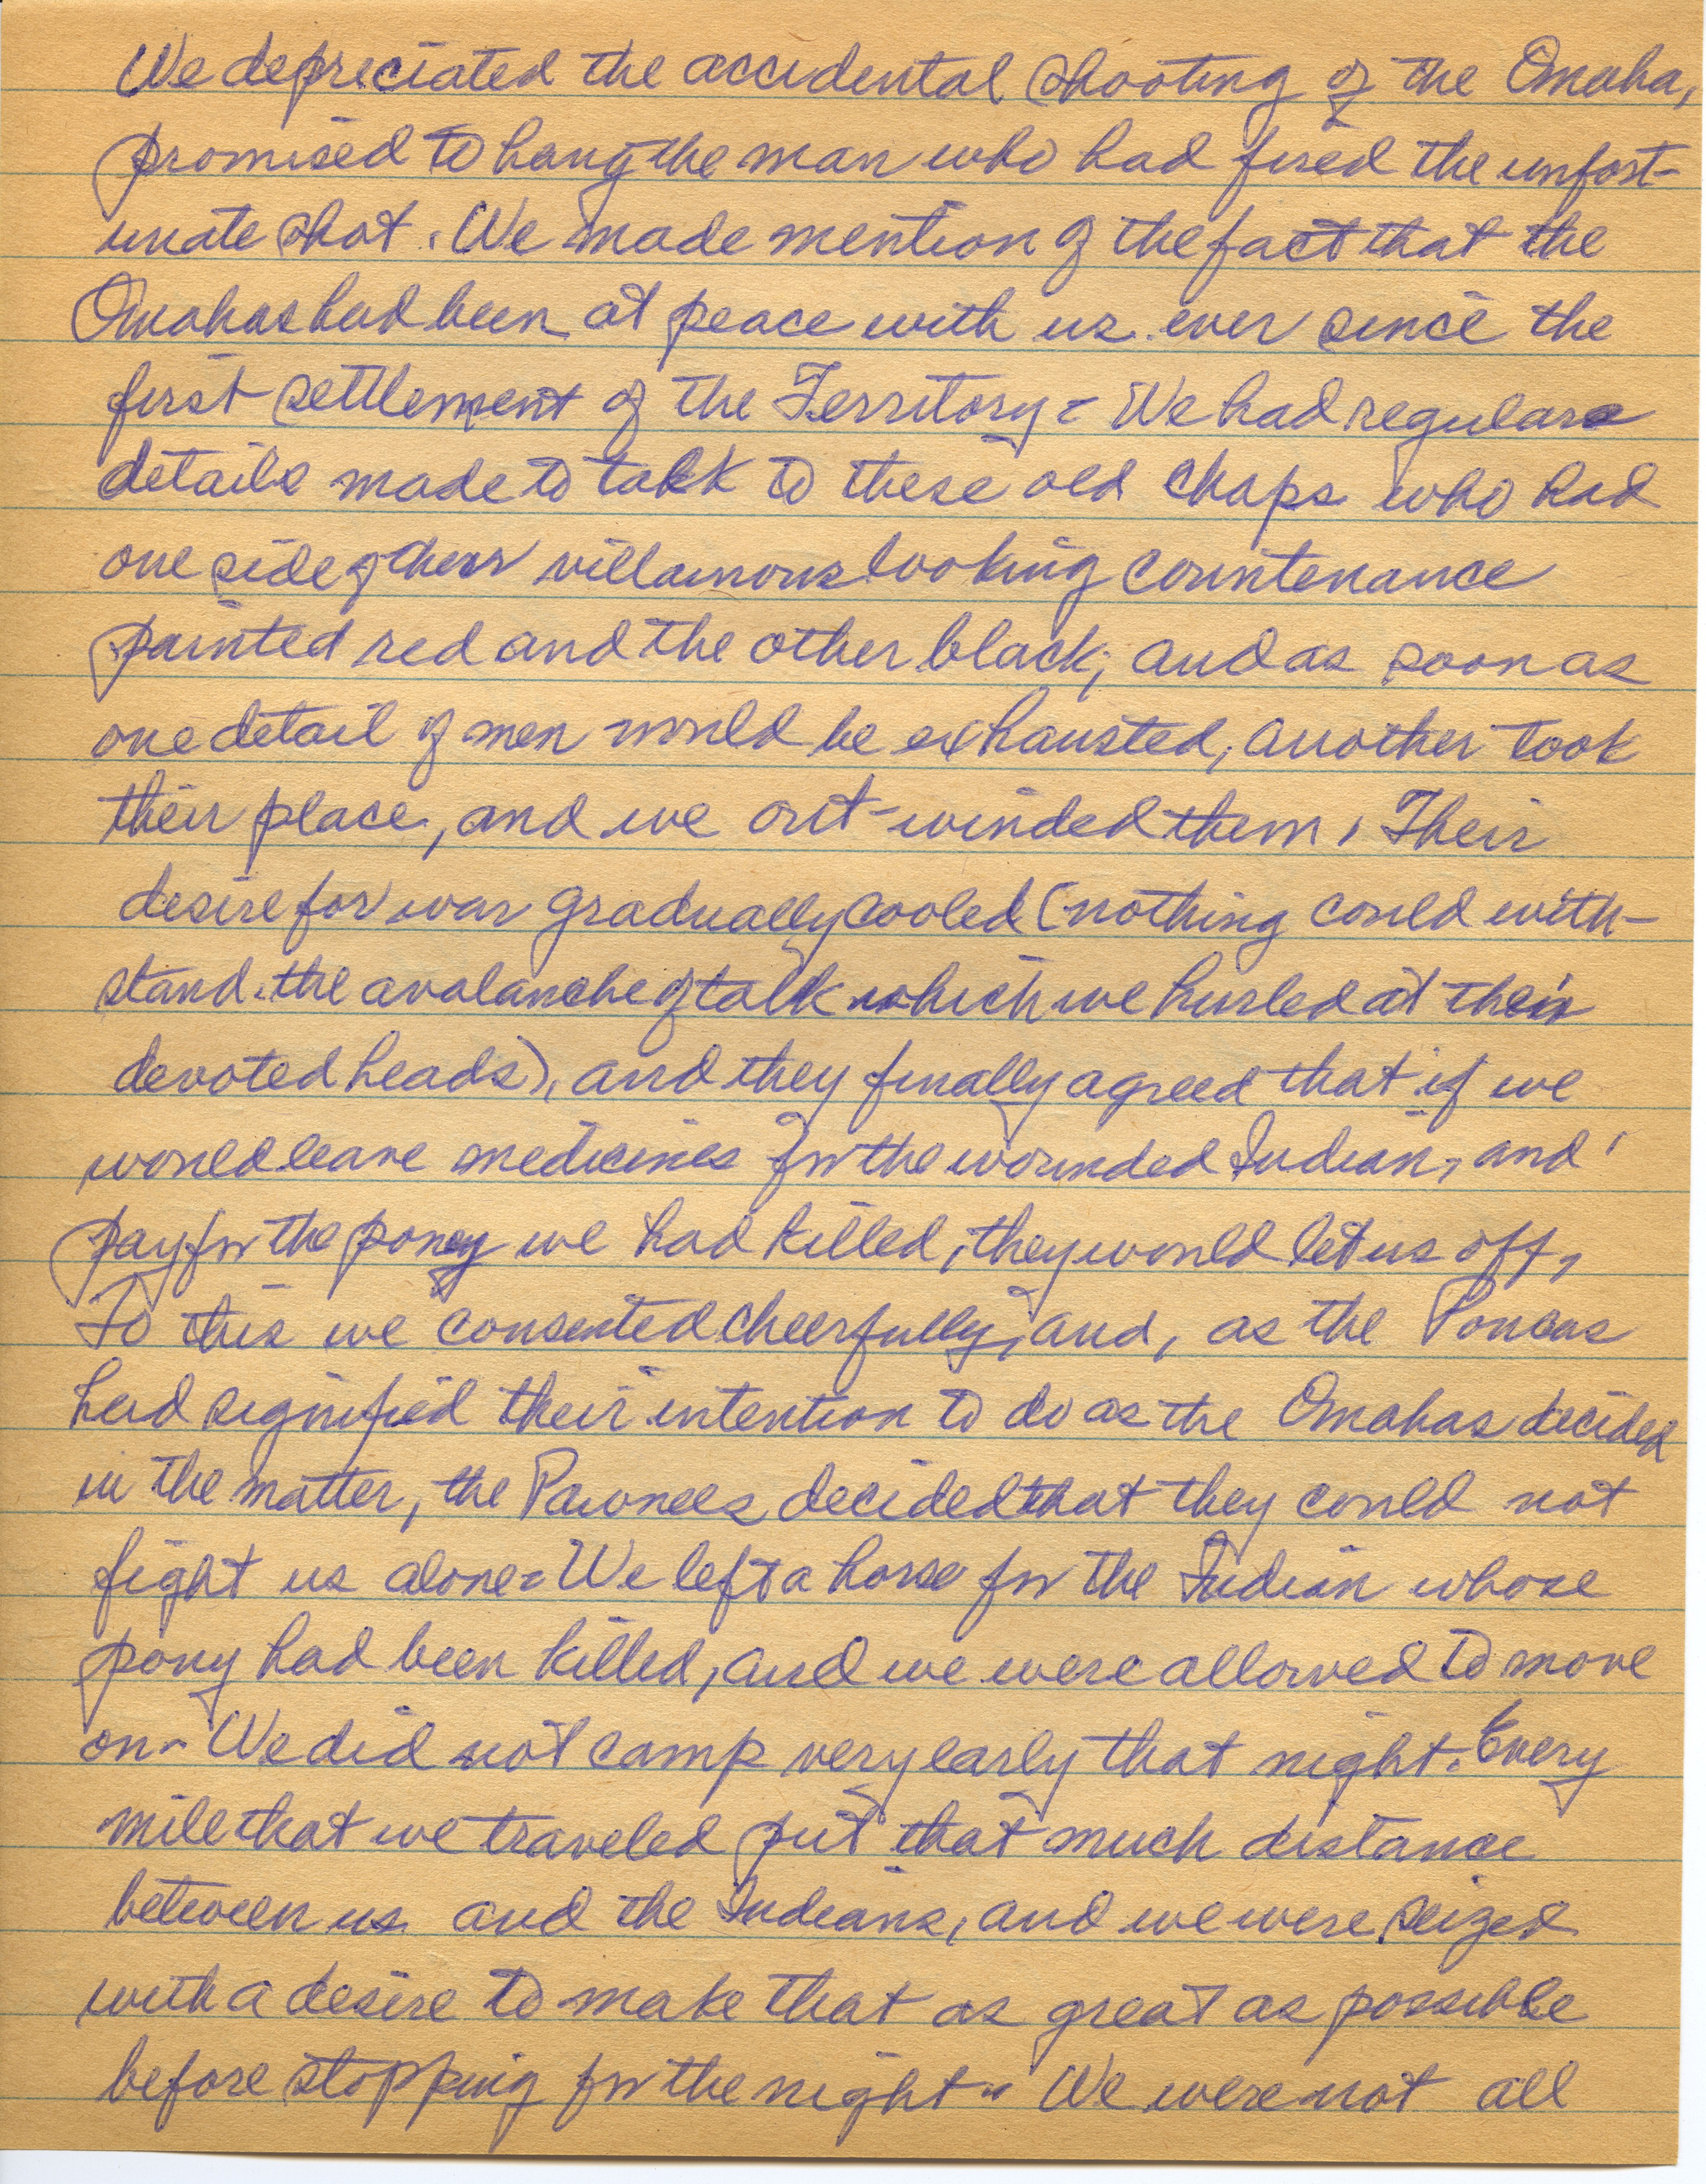 We depreciated the accidental shooting of the Omaha,
promised to hang the man who had fired the unfort-
unate shot. We made mention of the fact that the
Omahas had been at peace with us ever since the
first settlement of the Territory - We had regular
details made to talk to these old chaps who had
one side of their villainous looking countenance
painted red and the other black; and as soon as
one detail of men would be exhausted, another took
their place, and we out-winded them. Their
desire for war gradually cooled (nothing could with-
stand the avalanche of talk which we hurled at their
devoted heads), and they finally agreed that if we
would leave medicines for the wounded Indian, and
pay for the poney we had killed, they would let us off,
To this we consented cheerfully, and, as the Poncas
had signified their intention to do as the Omahas decided
in the matter, the Pawnees decided that they could not
fight us alone - We left a horse for the Indian whose
pony had been killed, and we were allowed to move
on - We did not camp very early that night. Every
mile that we traveled put that much distance
between us and the Indians, and we were seized
with a desire to make that as great as possible
before stopping for the night - We were not all